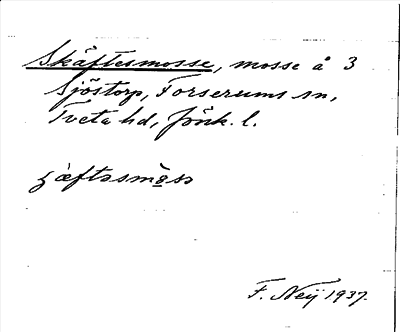 Skäftesmosse, mosse å 3
Sjöstorp, Forserums sn,
Tveta hd, Jönk. l.
F. Neij 1937.